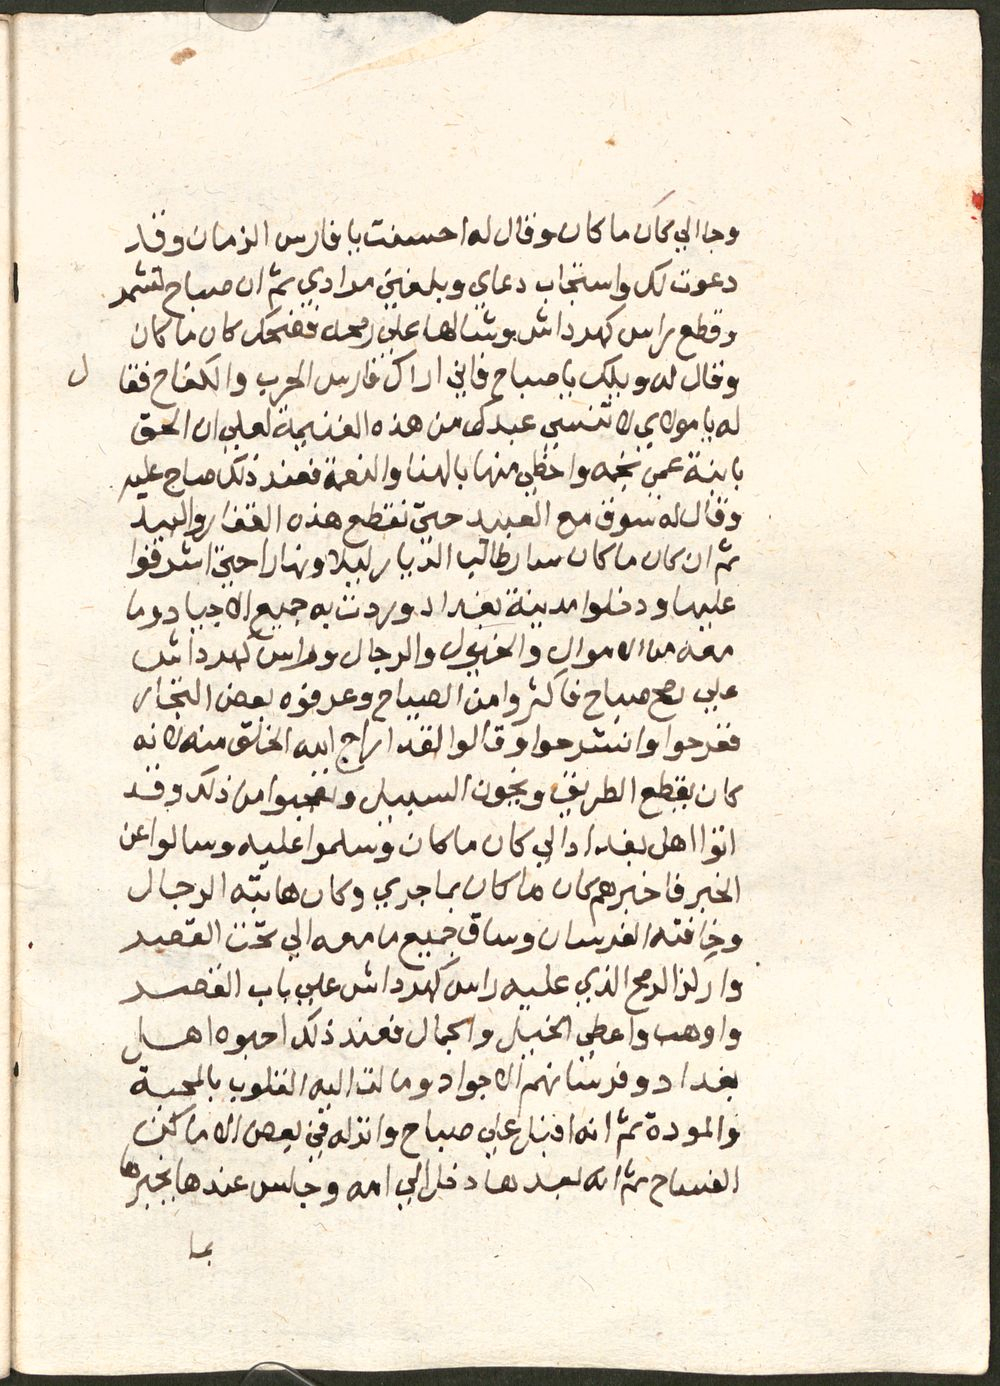 وجا الي كان ما كان وقال له احسنت يا فارس الزمان وقد
دعوت لك واستجاب دعاي وبلغني مرادي ثم ان صباح تشمر
وقطع راس كهرداش وشالها علي رمحه فضحك كان ما كان
وقال له ويلك يا صباح فاني اراك فارس الحرب والكفاح فقا
ل
له يا مولاي لا تنسي عبدك من هذه الغنيمة لعلي ان الحق
بابنة عمي نجمه واحظي منها بالهنا والنعمة فعند ذلك صاح عليه
وقال له سوق مع العبيد حتي نقطع هذه القفار والبيد
ثم ان كان ما كان سار طالب الديار ليلا ونهارا حتي اشرفوا
عليها ودخلوا مدينة بغداد ودرت به جميع الاجياد وما
معه من الاموال والخيول والرجال وراس كهرداش
علي رمح صباح فاكثروا من الصياح وعرفوه بعض التجار
ففرحوا وانشرحوا وقالوا لقد اراح الله الخلق منه لانه
كان يقطع الطريق ويخون السبيل وتعجبوا من ذلك وقد
اتوا اهل بغداد الي كان ما كان وسلموا عليه وسالوا عن
الخبر فاخبرهم كان ما كان بما جري وكان هابته الرجال
وخافته الفرسان وساق جميع ما معه الي تحت القصر
واركز الرمح الذي عليه راس كهرداش علي باب القصر
واوهب واعطي الخيل والجمال فعند ذلك احبوه اهل
بغداد وفرسانهم الاجواد ومالت اليه القلوب بالمحبة
والمودة ثم انه اقبل علي صباح وانزله في بعض الاماكن
الفساح ثم انه بعدها دخل الي امه وجلس عندها يخبرها
بما